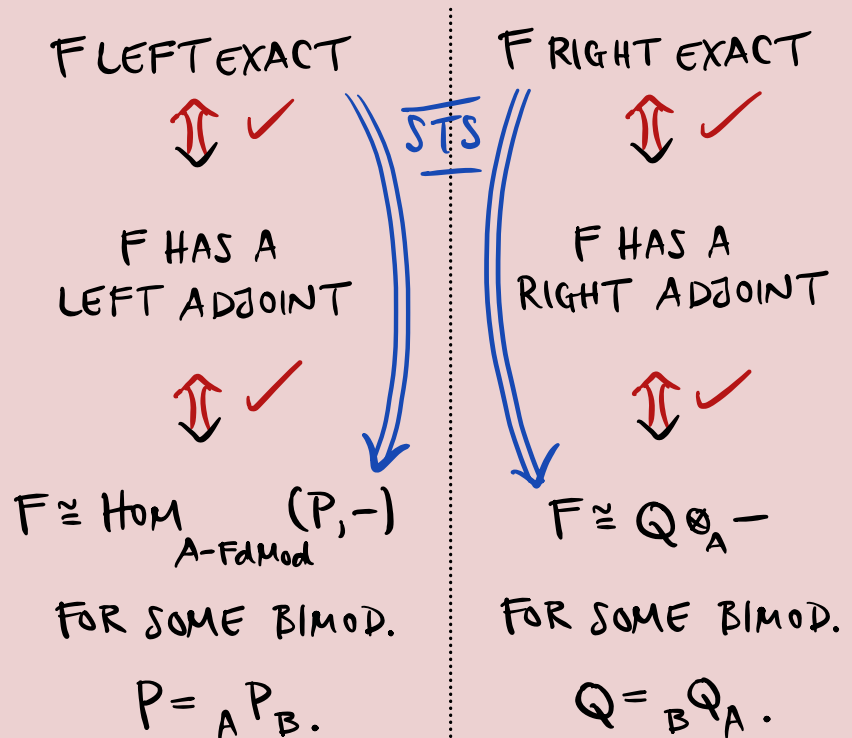 F LEFT EXACT
F HAS A
LEFT ADJOINT
F ≅ HOM_{A-FdMod} (P, −)
FOR SOME BIMOD.
P = _A P_B.
STS
F RIGHT EXACT
F HAS A
RIGHT ADJOINT
F ≅ Q ⊗_A −
FOR SOME BIMOD.
Q = _B Q_A.